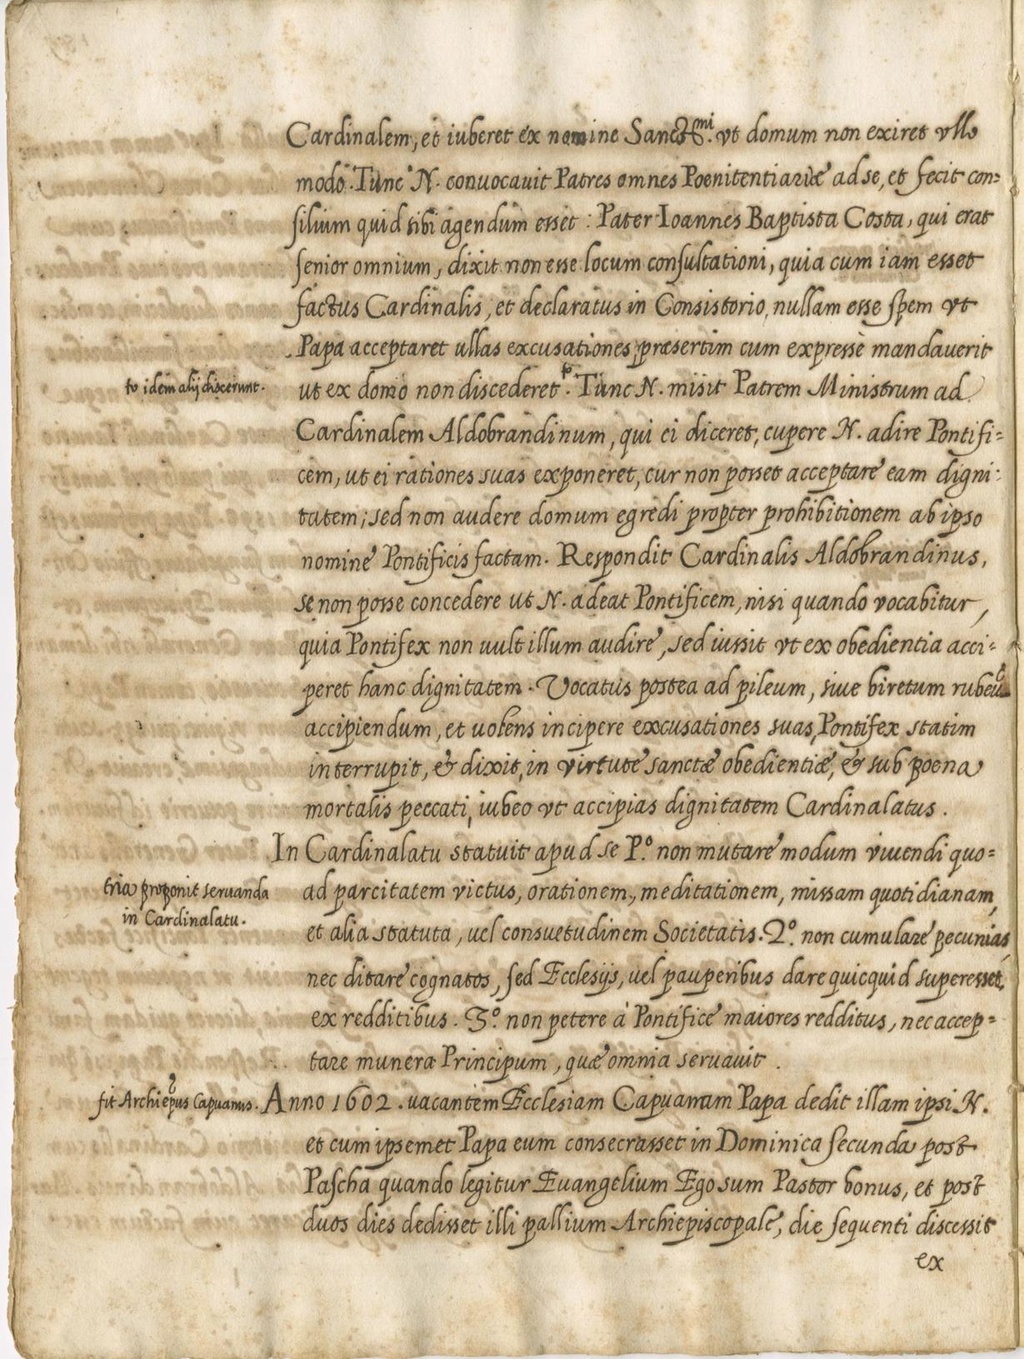 Cardinalem, et iuberet ex nomine Sanct.mi vt domum non exiret vllo
modo. Tunc N. conuocauit Patres omnes Poenitentiariæ ad se, et fecit con=
silium quid sibi agendum esset: Pater Ioannes Baptista Costa, qui erat
senior omnium, dixit non esse locum consultationi, quia cum iam esset
factus Cardinalis, et declaratus in Consistorio, nullam esse spem vt
Papa acceptaret ullas excusationes, præsertim cum expresse mandauerit
to idem alij dixerunt.
ut ex domo non discederet to. Tunc N. misit Patrem Ministrum ad
Cardinalem Aldobrandinum, qui ei diceret, cupere N. adire Pontifi=
cem, ut ei rationes suas exponeret, cur non posset acceptare eam digni=
tatem; sed non audere domum egredi propter prohibitionem ab ipso
nomine Pontificis factam. Respondit Cardinalis Aldobrandinus,
se non posse concedere ut N. adeat Pontificem, nisi quando vocabitur,
quia Pontifex non uult illum audire, sed iussit vt ex obedientia acci=
peret hanc dignitatem. Vocatus postea ad pileum, siue biretum rubeū
accipiendum, et uolens incipere excusationes suas, Pontifex statim
interrupit, & dixit, in virtute sanctæ obedientiæ, & sub poena
mortalis peccati, iubeo vt accipias dignitatem Cardinalatus.
In Cardinalatu statuit apud se P.º non mutare modum viuendi quo=
tria proponit seruanda
in Cardinalatu.
ad parcitatem victus, orationem, meditationem, missam quotidianam,
et alia statuta, uel consuetudinem Societatis. 2.º non cumulare pecunias,
nec ditare cognatos, sed Ecclesijs, uel pauperibus dare quicquid superesset
ex redditibus. 3.º non petere à Pontifice maiores redditus, nec accep=
tare munera Principum, quæ omnia seruauit.
fit Archiepus Capuanus.
Anno 1602. uacantem Ecclesiam Capuanam Papa dedit illam ipsi N.
et cum ipsemet Papa eum consecrasset in Dominica secunda post
Pascha quando legitur Euangelium Ego sum Pastor bonus, et post
duos dies dedisset illi pallium Archiepiscopale, die sequenti discessit
ex